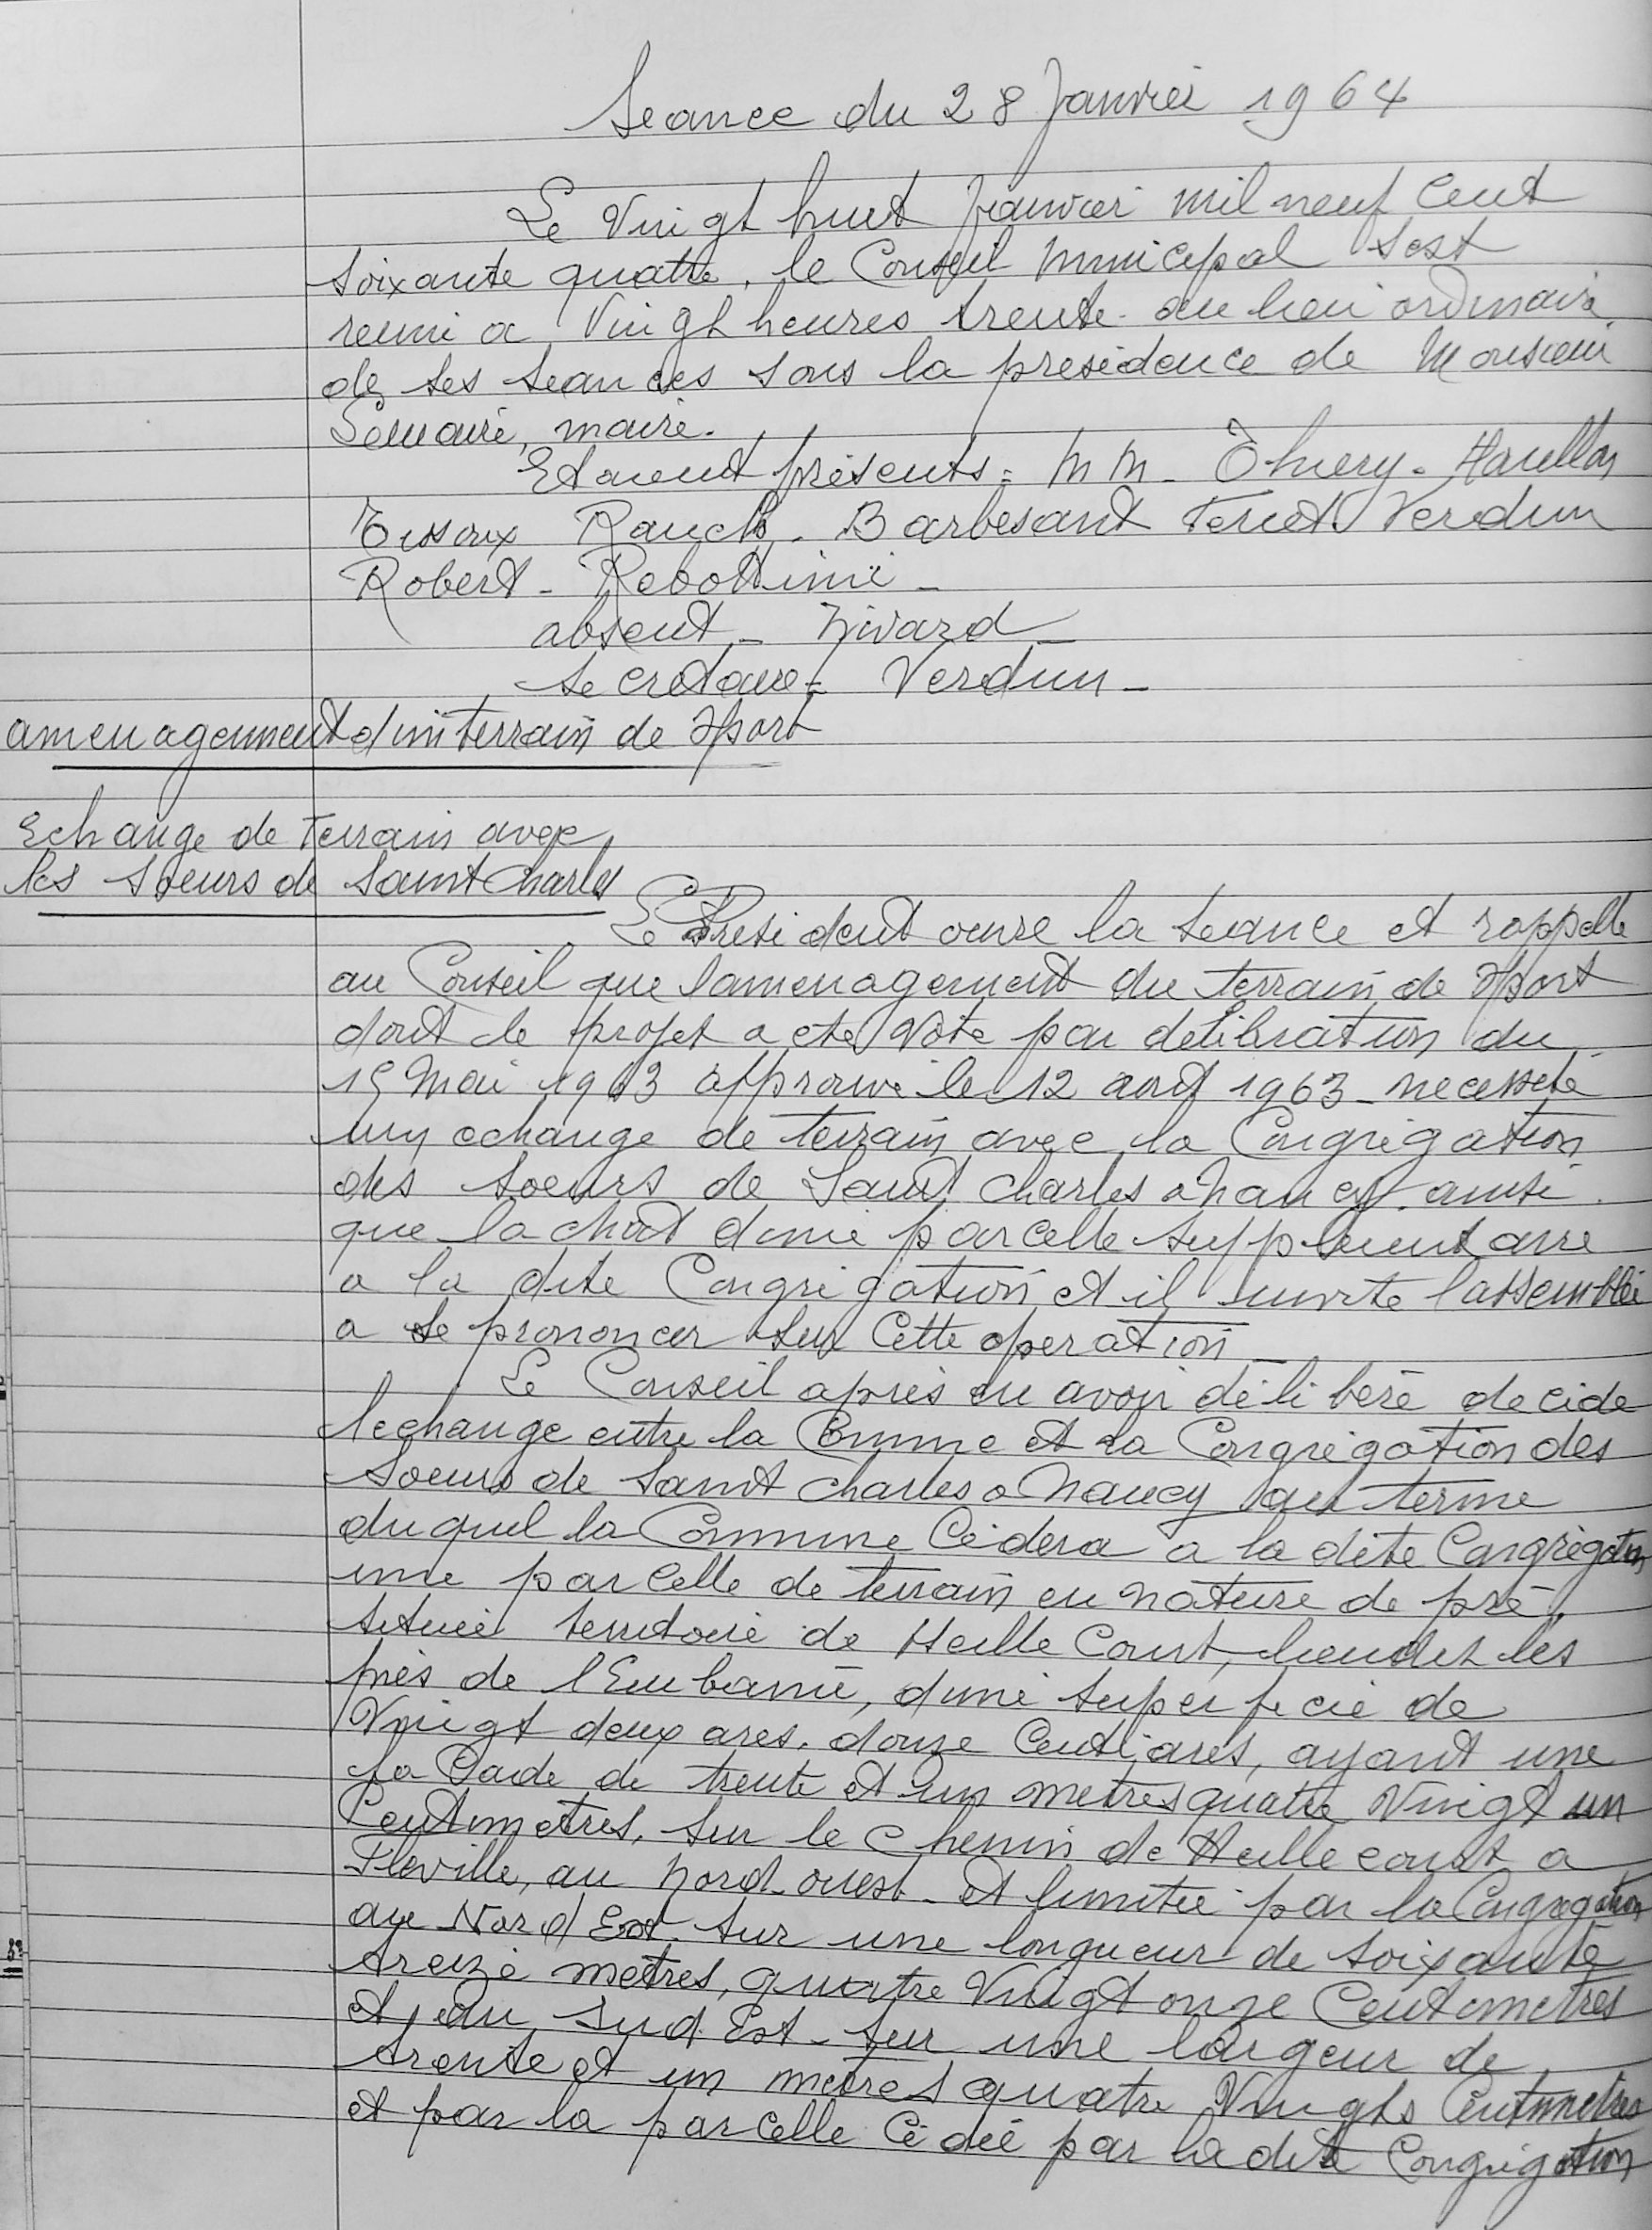 Seance du 28 Janvier 1964
Le Vingt huit Janvier mil neuf Cent
soixante quatre, le Conseil Municipal s'est
reuni a Vingt heures trente au lieu ordinaire
de ses seances sous la presidence de Monsieur
Lemaire, maire.
Etaient présents: MM. Thiery - Haillon
Rauch - Barbesant Verdun
Robert - Rebottini -
absent - Nivard -
secretaire - Verdun -
amenagement d'un terrain de sport
Echange de terrain avec
les soeurs de Saint Charles
Le President ouvre la seance et rappelle
au Conseil que lamenagement du terrain de sport
dont le projet a ete voté par deliberation du
15 Mai 1963 approuvé le 12 aout 1963 - necessite
un echange de terrain avec la Congrégation
des soeurs de Saint Charles a Nancy ainsi
que lachat d'une parcelle supplementaire
a la dite Congrégation et il invite l'assemblée
a se prononcer sur Cette operation
Le Conseil après en avoir déliberé decide
lechange entre la Commune et la Congrégation des
Soeurs de Saint Charles a Nancy au terme
duquel la Commune Cédera a la dite Congrégation
une parcelle de terrain en nature de pré,
située territoire de Heillecourt, lieudit les
près de l'Embanie, d'une superficie de
Vingt deux ares, douze Centiares, ayant une
facade de trente et un metres quatre Vingt un
Centimetres, sur le chemin de Heillecourt a
Fleville, au Nord-ouest - et limitée par la Congregation
au Nord Est sur une longueur de soixante
treize metres, quatre Vingt onze Centimetres
et au Sud Est - sur une largeur de
trente et un metres quatre Vingts Centimetres
et par la parcelle Cédée par la dite Congrégation